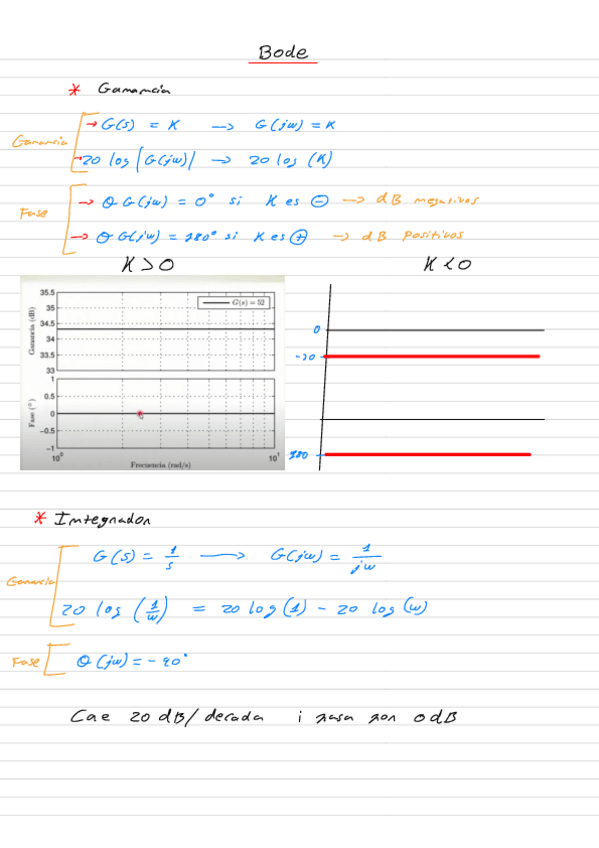 Bode
* Ganancia
Ganancia
→ G(s) = K → G(jw) = K
→ 20 log |G(jw)| → 20 log (K)
Fase
→ θ G(jw) = 0° si K es ⊖ → dB negativos
→ θ G(jw) = 180° si K es ⊕ → dB Positivos
K > 0
K < 0
G(s) = 52
Ganancia (dB)
35.5
35
34.5
34
33.5
33
Fase (°)
1
0.5
0
-0.5
-1
10⁰ 10¹
Frecuencia (rad/s)
0
-20
180
* Integrador
Ganancia
G(s) = 1/s → G(jw) = 1/jw
20 log (1/w) = 20 log (1) - 20 log (w)
Fase
θ (jw) = -90°
Cae 20 dB/decada i pasa por 0 dB